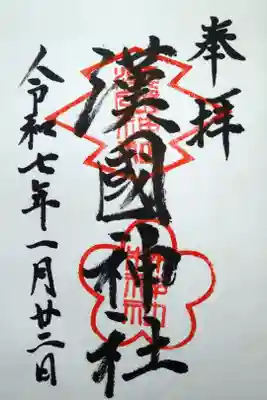 奉拝
漢國神社
令和七年一月廿三日